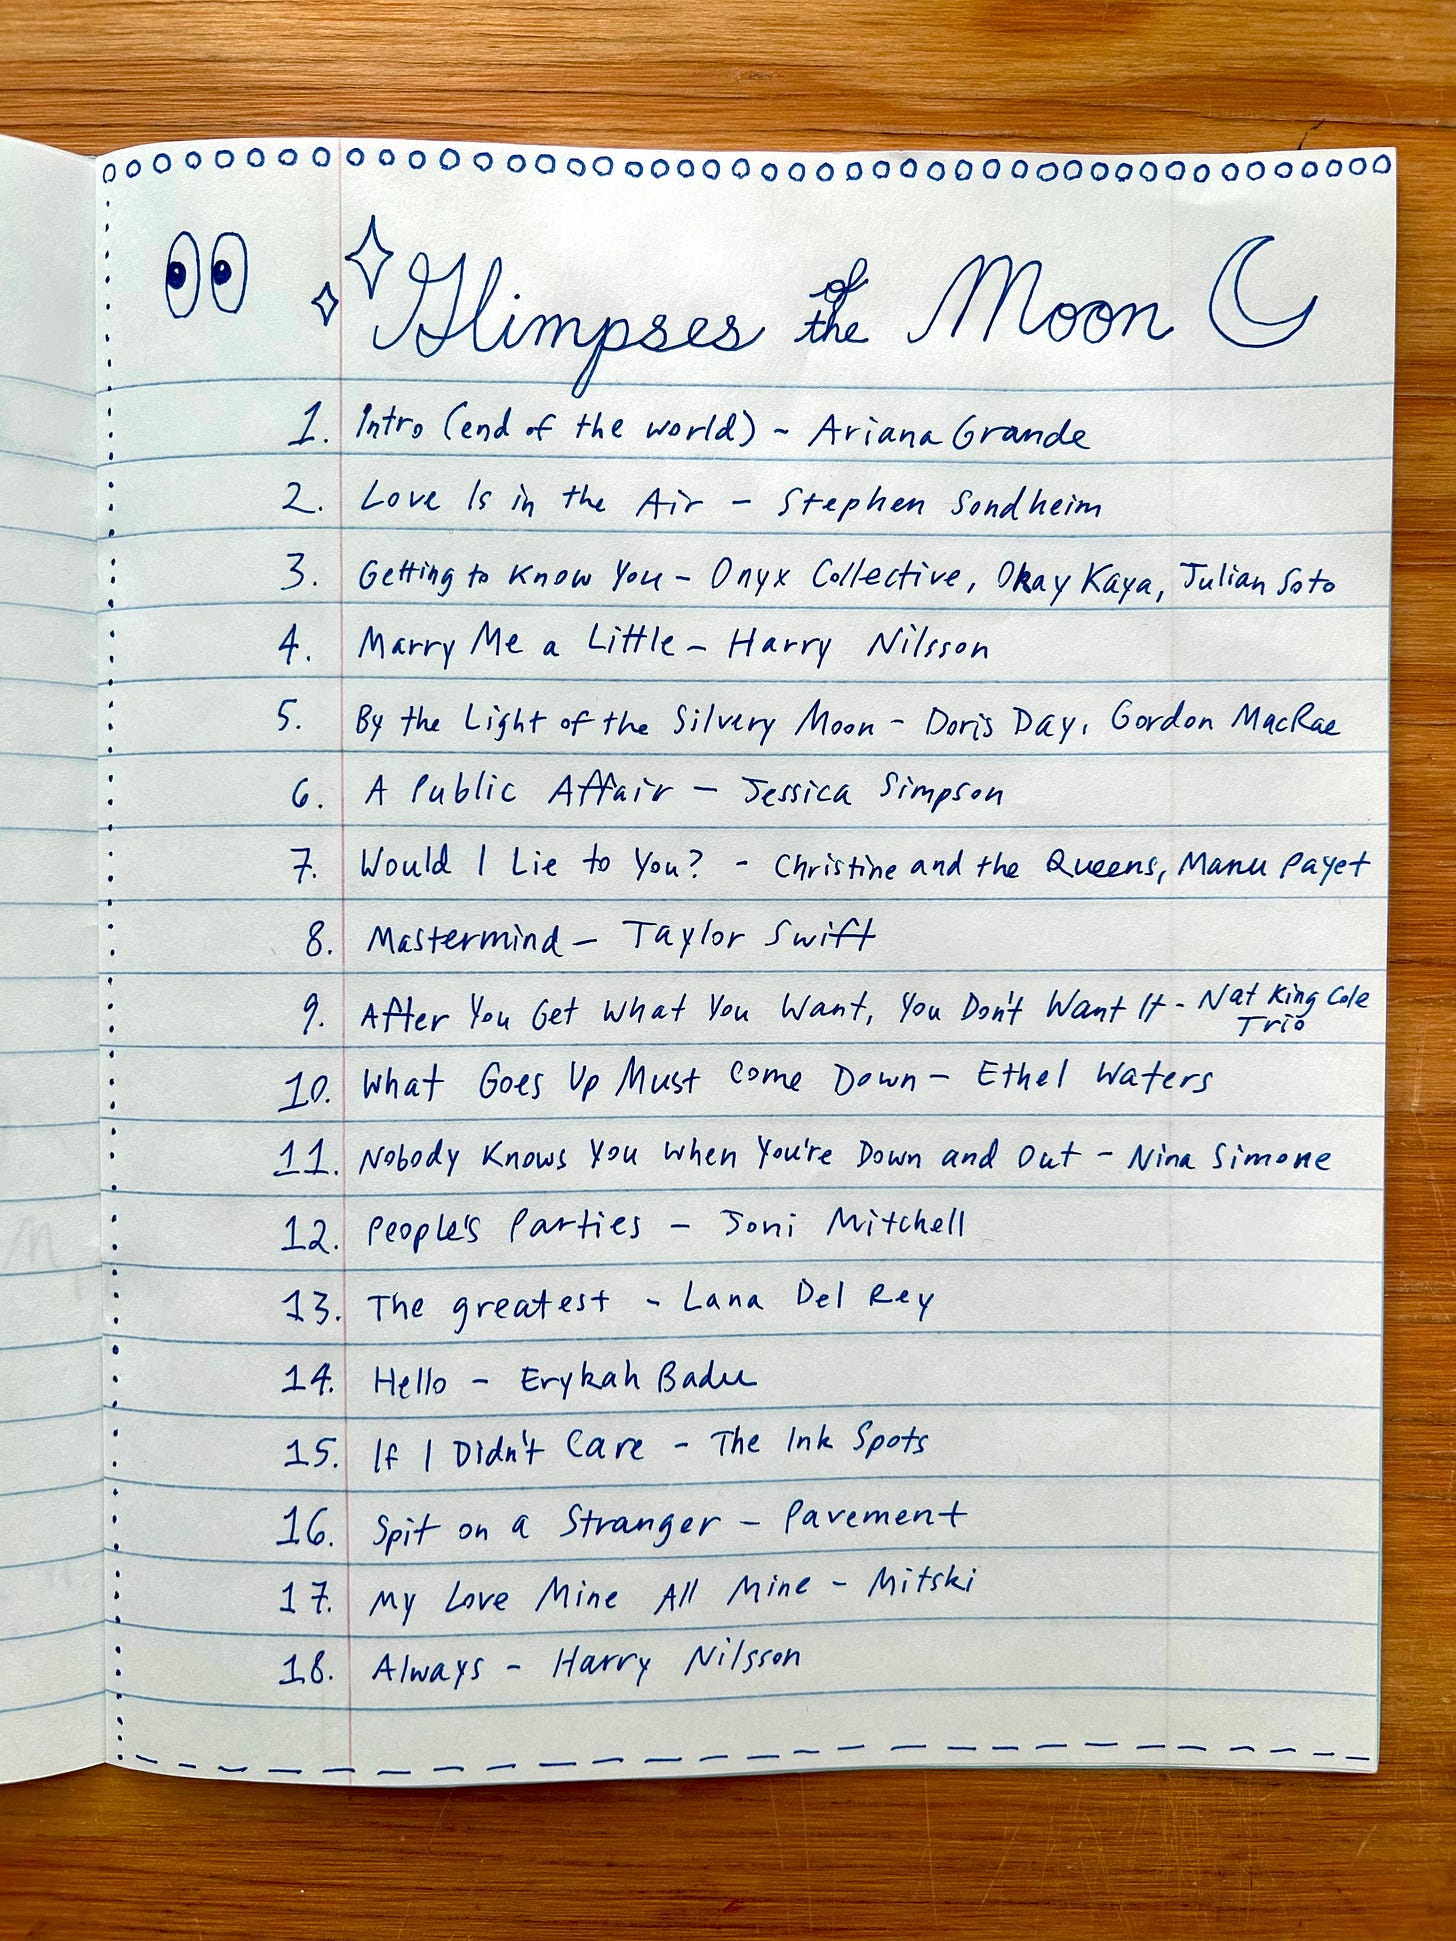 Glimpses of the Moon
1. Intro (end of the world) - Ariana Grande
2. Love Is in the Air - Stephen Sondheim
3. Getting to Know You - Onyx Collective, Okay Kaya, Julian Soto
4. Marry Me a Little - Harry Nilsson
5. By the Light of the Silvery Moon - Doris Day, Gordon MacRae
6. A Public Affair - Jessica Simpson
7. Would I Lie to You? - Christine and the Queens, Manu Payet
8. Mastermind - Taylor Swift
9. After You Get What You Want, You Don't Want It - Nat King Cole
Trio
10. What Goes Up Must Come Down - Ethel Waters
11. Nobody Knows You When You're Down and Out - Nina Simone
12. People's Parties - Joni Mitchell
13. The greatest - Lana Del Rey
14. Hello - Erykah Badu
15. If I Didn't Care - The Ink Spots
16. Spit on a Stranger - Pavement
17. My Love Mine All Mine - Mitski
18. Always - Harry Nilsson